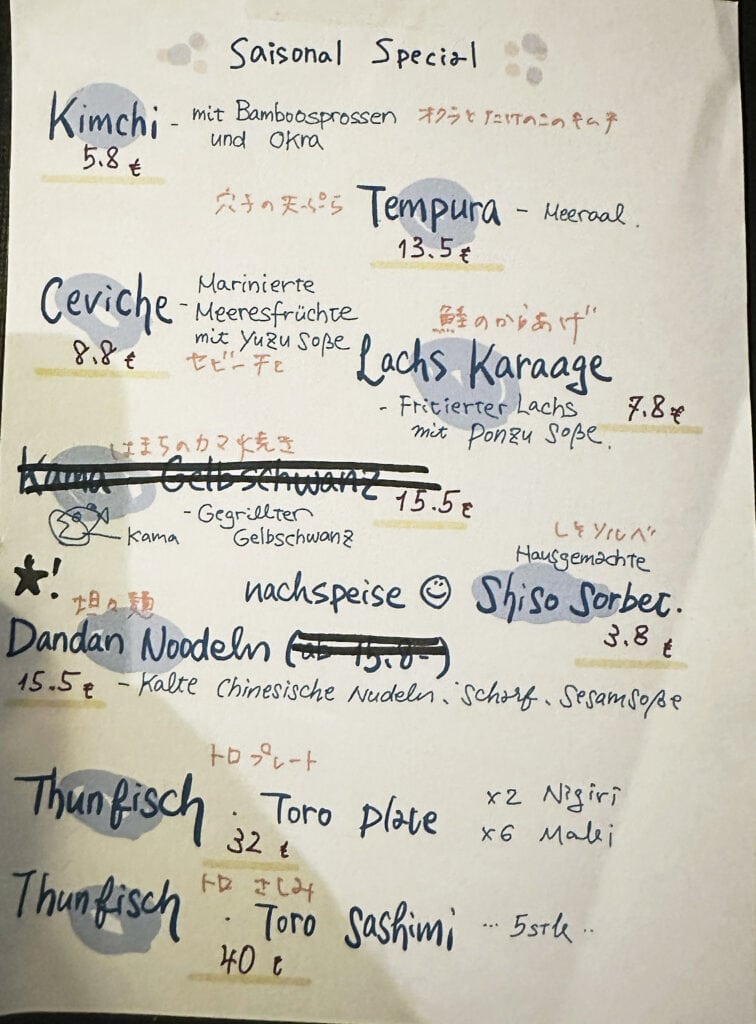 Saisonal Special
Kimchi - mit Bamboosprossen オクラとたけのこのキムチ
und Okra
5.8 €
穴子の天ぷら Tempura - Meeraal.
13.5 €
Ceviche - Marinierte
Meeresfrüchte
mit Yuzu Soße
8.8 € セビーチェ
鮭のからあげ
Lachs Karaage
- Fritierter Lachs 7.8 €
mit Ponzu Soße.
はまちのカマ焼き
Kama Gelbschwanz 15.5 €
- Gegrillter
Gelbschwanz
Kama
しそソルベ
Hausgemachte
nachspeise ☺ Shiso Sorbet.
3.8 €
★!
坦々麺
Dandan Noodeln (ab 15.8-)
15.5 € - Kalte Chinesische Nudeln、scharf、Sesamsoße
トロプレート
Thunfisch . Toro Plate x2 Nigiri
x6 Maki
32 €
トロ さしみ
Thunfisch . Toro Sashimi ... 5stk ..
40 €